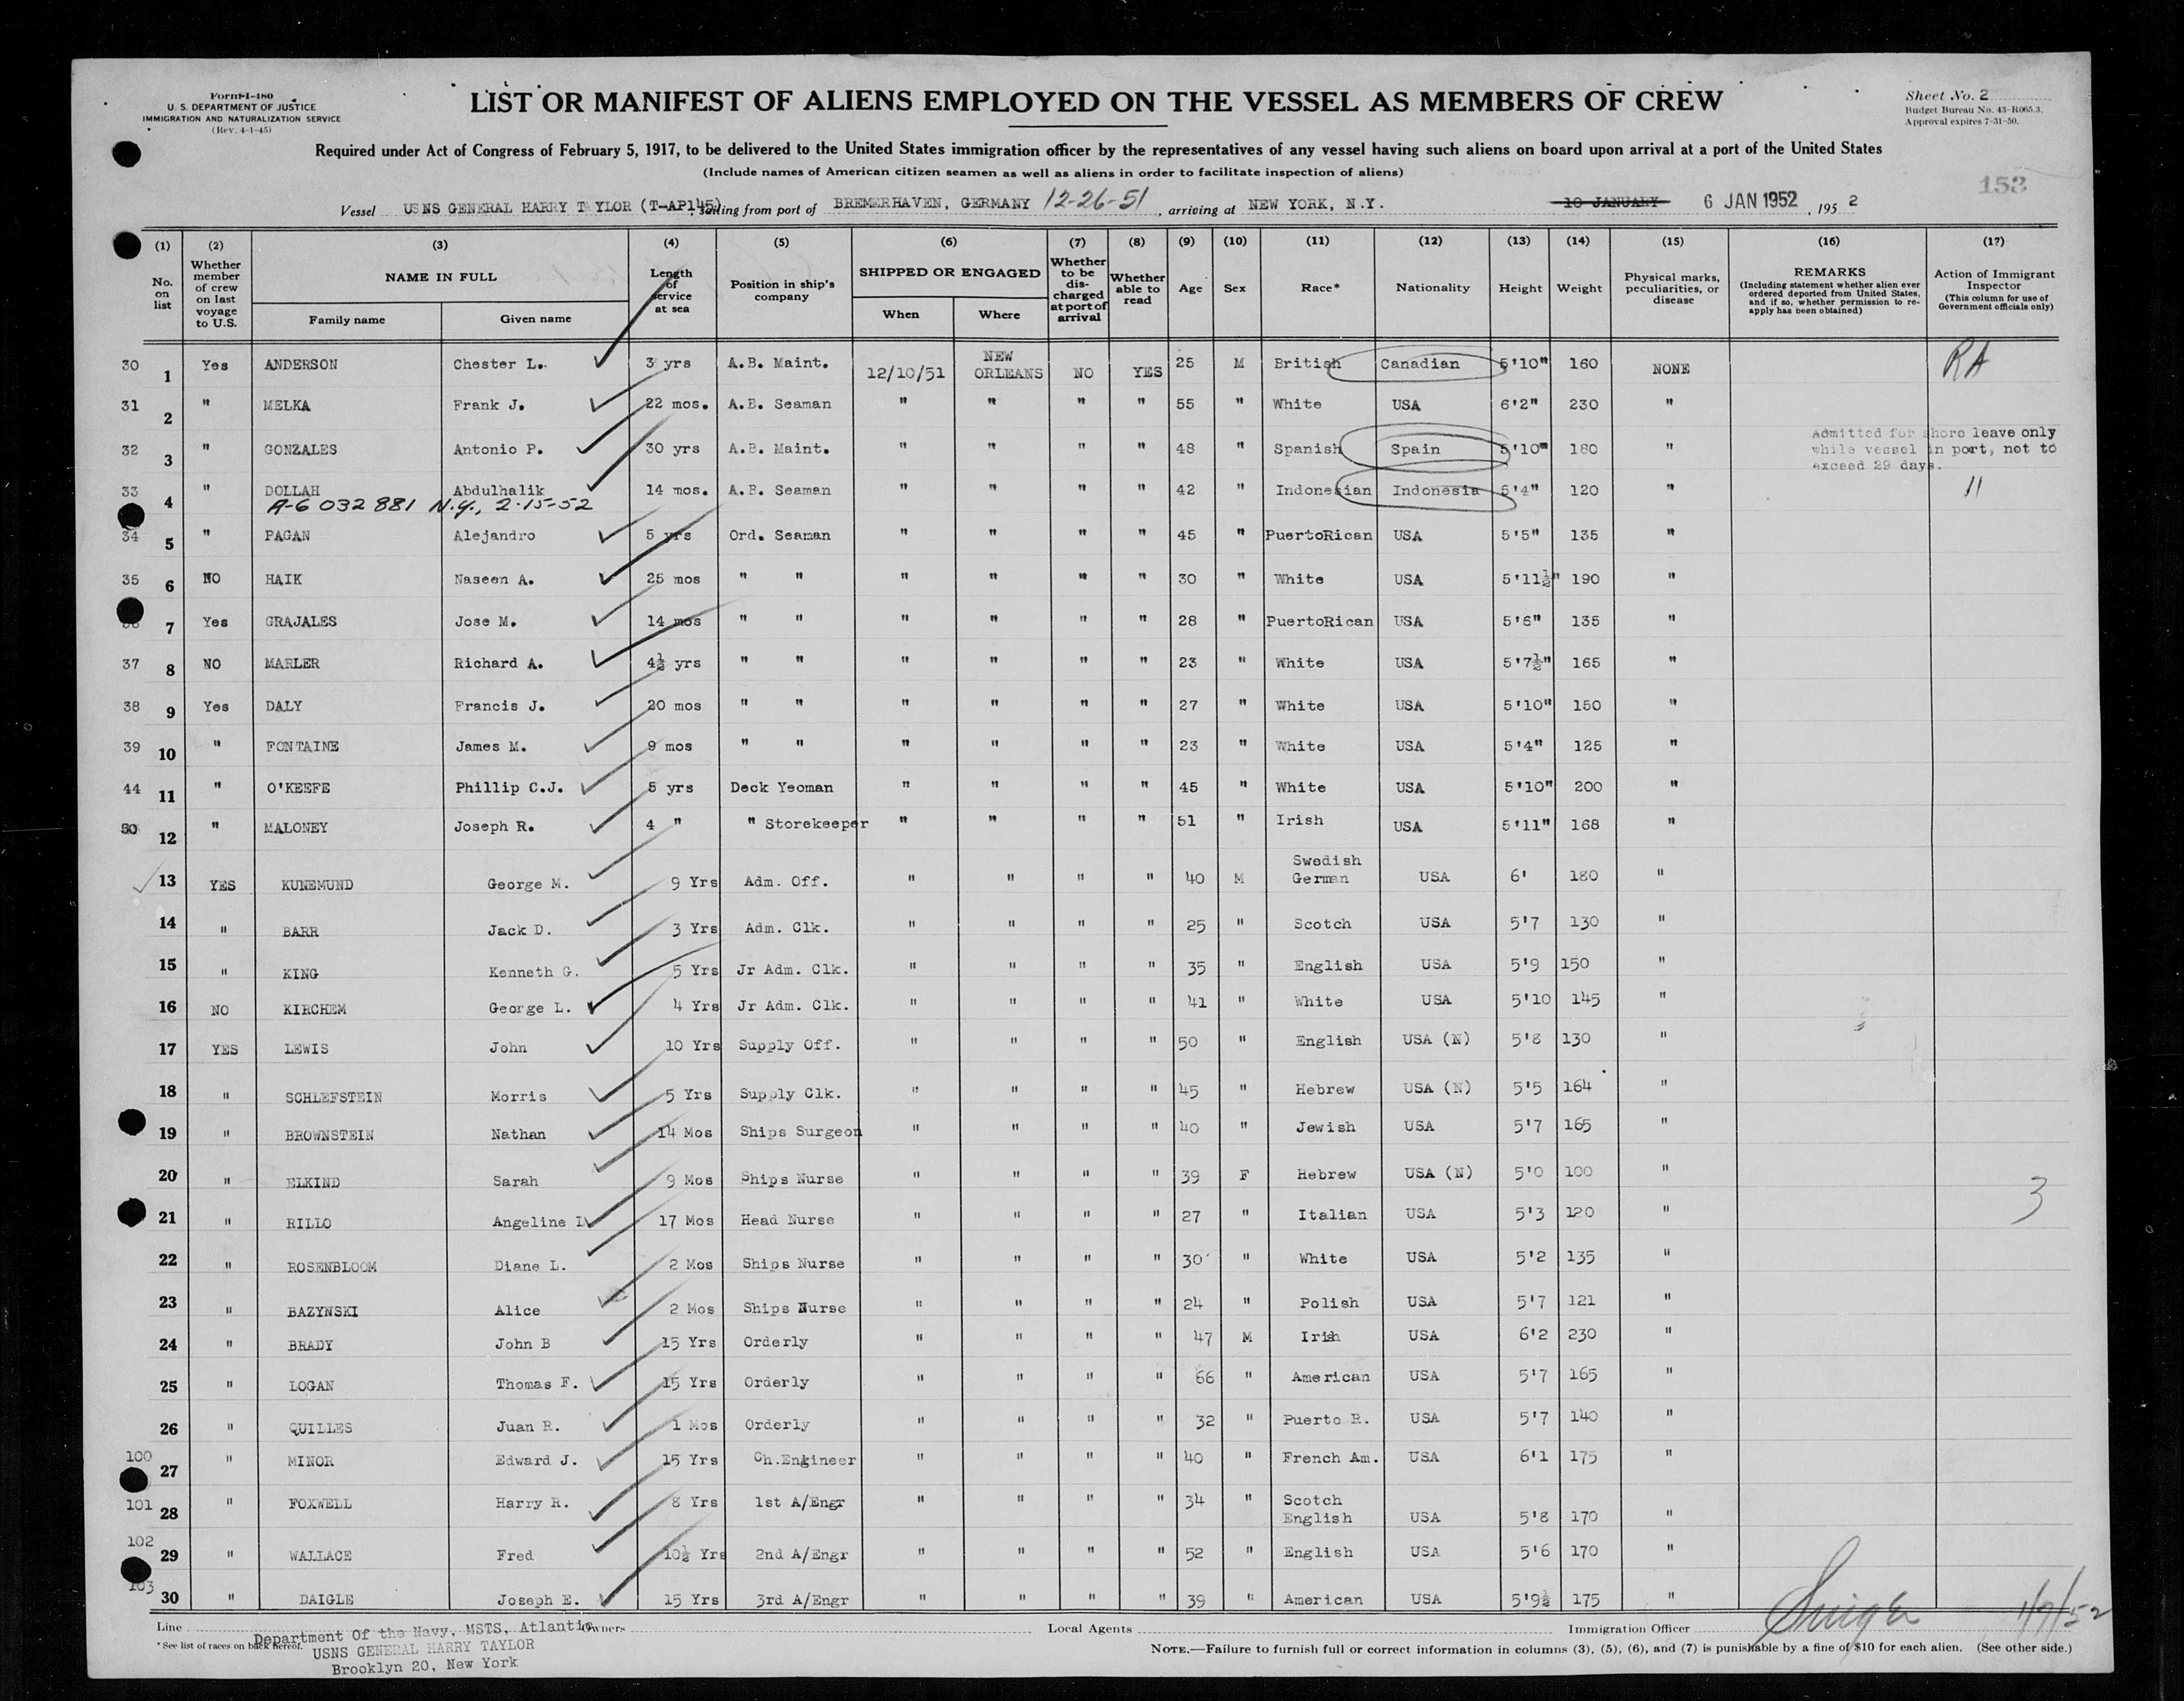 Form I-480
U. S. DEPARTMENT OF JUSTICE
IMMIGRATION AND NATURALIZATION SERVICE
(Rev. 4-1-45)
LIST OR MANIFEST OF ALIENS EMPLOYED ON THE VESSEL AS MEMBERS OF CREW
Sheet No. 2
Budget Bureau No. 43-R065.3.
Approval expires 7-31-50.
Required under Act of Congress of February 5, 1917, to be delivered to the United States immigration officer by the representatives of any vessel having such aliens on board upon arrival at a port of the United States
(Include names of American citizen seamen as well as aliens in order to facilitate inspection of aliens)
153
Vessel USNS GENERAL HARRY T YLOR (T-AP145), sailing from port of BREMERHAVEN, GERMANY 12-26-51, arriving at NEW YORK, N.Y. 10 JANUARY 6 JAN 1952, 195 2
(1) (2) (3) (4) (5) (6) (7) (8) (9) (10) (11) (12) (13) (14) (15) (16) (17)
No. on list
Whether member of crew on last voyage to U.S.
NAME IN FULL
Family name
Given name
Length of service at sea
Position in ship's company
SHIPPED OR ENGAGED
When
Where
Whether to be discharged at port of arrival
Whether able to read
Age
Sex
Race*
Nationality
Height
Weight
Physical marks, peculiarities, or disease
REMARKS
(Including statement whether alien ever ordered deported from United States, and if so, whether permission to reapply has been obtained)
Action of Immigrant Inspector
(This column for use of Government officials only)
30 1 Yes ANDERSON Chester L. 3 yrs A.B. Maint. 12/10/51 NEW ORLEANS NO YES 25 M British Canadian 5'10" 160 NONE RA
31 2 " MELKA Frank J. 22 mos. A.B. Seaman " " " " 55 " White USA 6'2" 230 "
32 3 " GONZALES Antonio P. 30 yrs A.B. Maint. " " " " 48 " Spanish Spain 5'10" 180 " Admitted for shore leave only while vessel in port, not to exceed 29 days.
33 4 " DOLLAH Abdulhalik 14 mos. A.B. Seaman " " " " 42 " Indonesian Indonesia 5'4" 120 " "
A-6 032 881 N.Y., 2-15-52
34 5 " PAGAN Alejandro 5 yrs Ord. Seaman " " " " 45 " PuertoRican USA 5'5" 135 "
35 6 NO HAIK Naseen A. 25 mos " " " " " " 30 " White USA 5'11½" 190 "
7 Yes GRAJALES Jose M. 14 mos " " " " " " 28 " PuertoRican USA 5'6" 135 "
37 8 NO MARLER Richard A. 4½ yrs " " " " " " 23 " White USA 5'7½" 165 "
38 9 Yes DALY Francis J. 20 mos " " " " " " 27 " White USA 5'10" 150 "
39 10 " FONTAINE James M. 9 mos " " " " " " 23 " White USA 5'4" 125 "
44 11 " O'KEEFE Phillip C.J. 5 yrs Deck Yeoman " " " " 45 " White USA 5'10" 200 "
50 12 " MALONEY Joseph R. 4 " " Storekeeper " " " " 51 " Irish USA 5'11" 168 "
13 YES KUNEMUND George M. 9 Yrs Adm. Off. " " " " 40 M Swedish German USA 6' 180 "
14 " BARR Jack D. 3 Yrs Adm. Clk. " " " " 25 " Scotch USA 5'7 130 "
15 " KING Kenneth G. 5 Yrs Jr Adm. Clk. " " " " 35 " English USA 5'9 150 "
16 NO KIRCHEM George L. 4 Yrs Jr Adm. Clk. " " " " 41 " White USA 5'10 145 "
17 YES LEWIS John 10 Yrs Supply Off. " " " " 50 " English USA (N) 5'8 130 "
18 " SCHLEFSTEIN Morris 5 Yrs Supply Clk. " " " " 45 " Hebrew USA (N) 5'5 164 "
19 " BROWNSTEIN Nathan 14 Mos Ships Surgeon " " " " 40 " Jewish USA 5'7 165 "
20 " ELKIND Sarah 9 Mos Ships Nurse " " " " 39 F Hebrew USA (N) 5'0 100 "
21 " RILLO Angeline L 17 Mos Head Nurse " " " " 27 " Italian USA 5'3 120 " 3
22 " ROSENBLOOM Diane L. 2 Mos Ships Nurse " " " " 30 " White USA 5'2 135 "
23 " BAZYNSKI Alice 2 Mos Ships Nurse " " " " 24 " Polish USA 5'7 121 "
24 " BRADY John B 15 Yrs Orderly " " " " 47 M Irish USA 6'2 230 "
25 " LOGAN Thomas F. 15 Yrs Orderly " " " " 66 " American USA 5'7 165 "
26 " QUILLES Juan R. 1 Mos Orderly " " " " 32 " Puerto R. USA 5'7 140 "
100 27 " MINOR Edward J. 15 Yrs Ch.Engineer " " " " 40 " French Am. USA 6'1 175 "
101 28 " FOXWELL Harry R. 8 Yrs 1st A/Engr " " " " 34 " Scotch English USA 5'8 170 "
102 29 " WALLACE Fred 10½ Yrs 2nd A/Engr " " " " 52 " English USA 5'6 170 "
103 30 " DAIGLE Joseph E. 15 Yrs 3rd A/Engr " " " " 39 " American USA 5'9½ 175 "
Line Department Of the Navy, MSTS, Atlantic Owners Local Agents Immigration Officer 1/7/52
*See list of races on back hereof.
USNS GENERAL HARRY TAYLOR
Brooklyn 20, New York
NOTE.—Failure to furnish full or correct information in columns (3), (5), (6), and (7) is punishable by a fine of $10 for each alien. (See other side.)